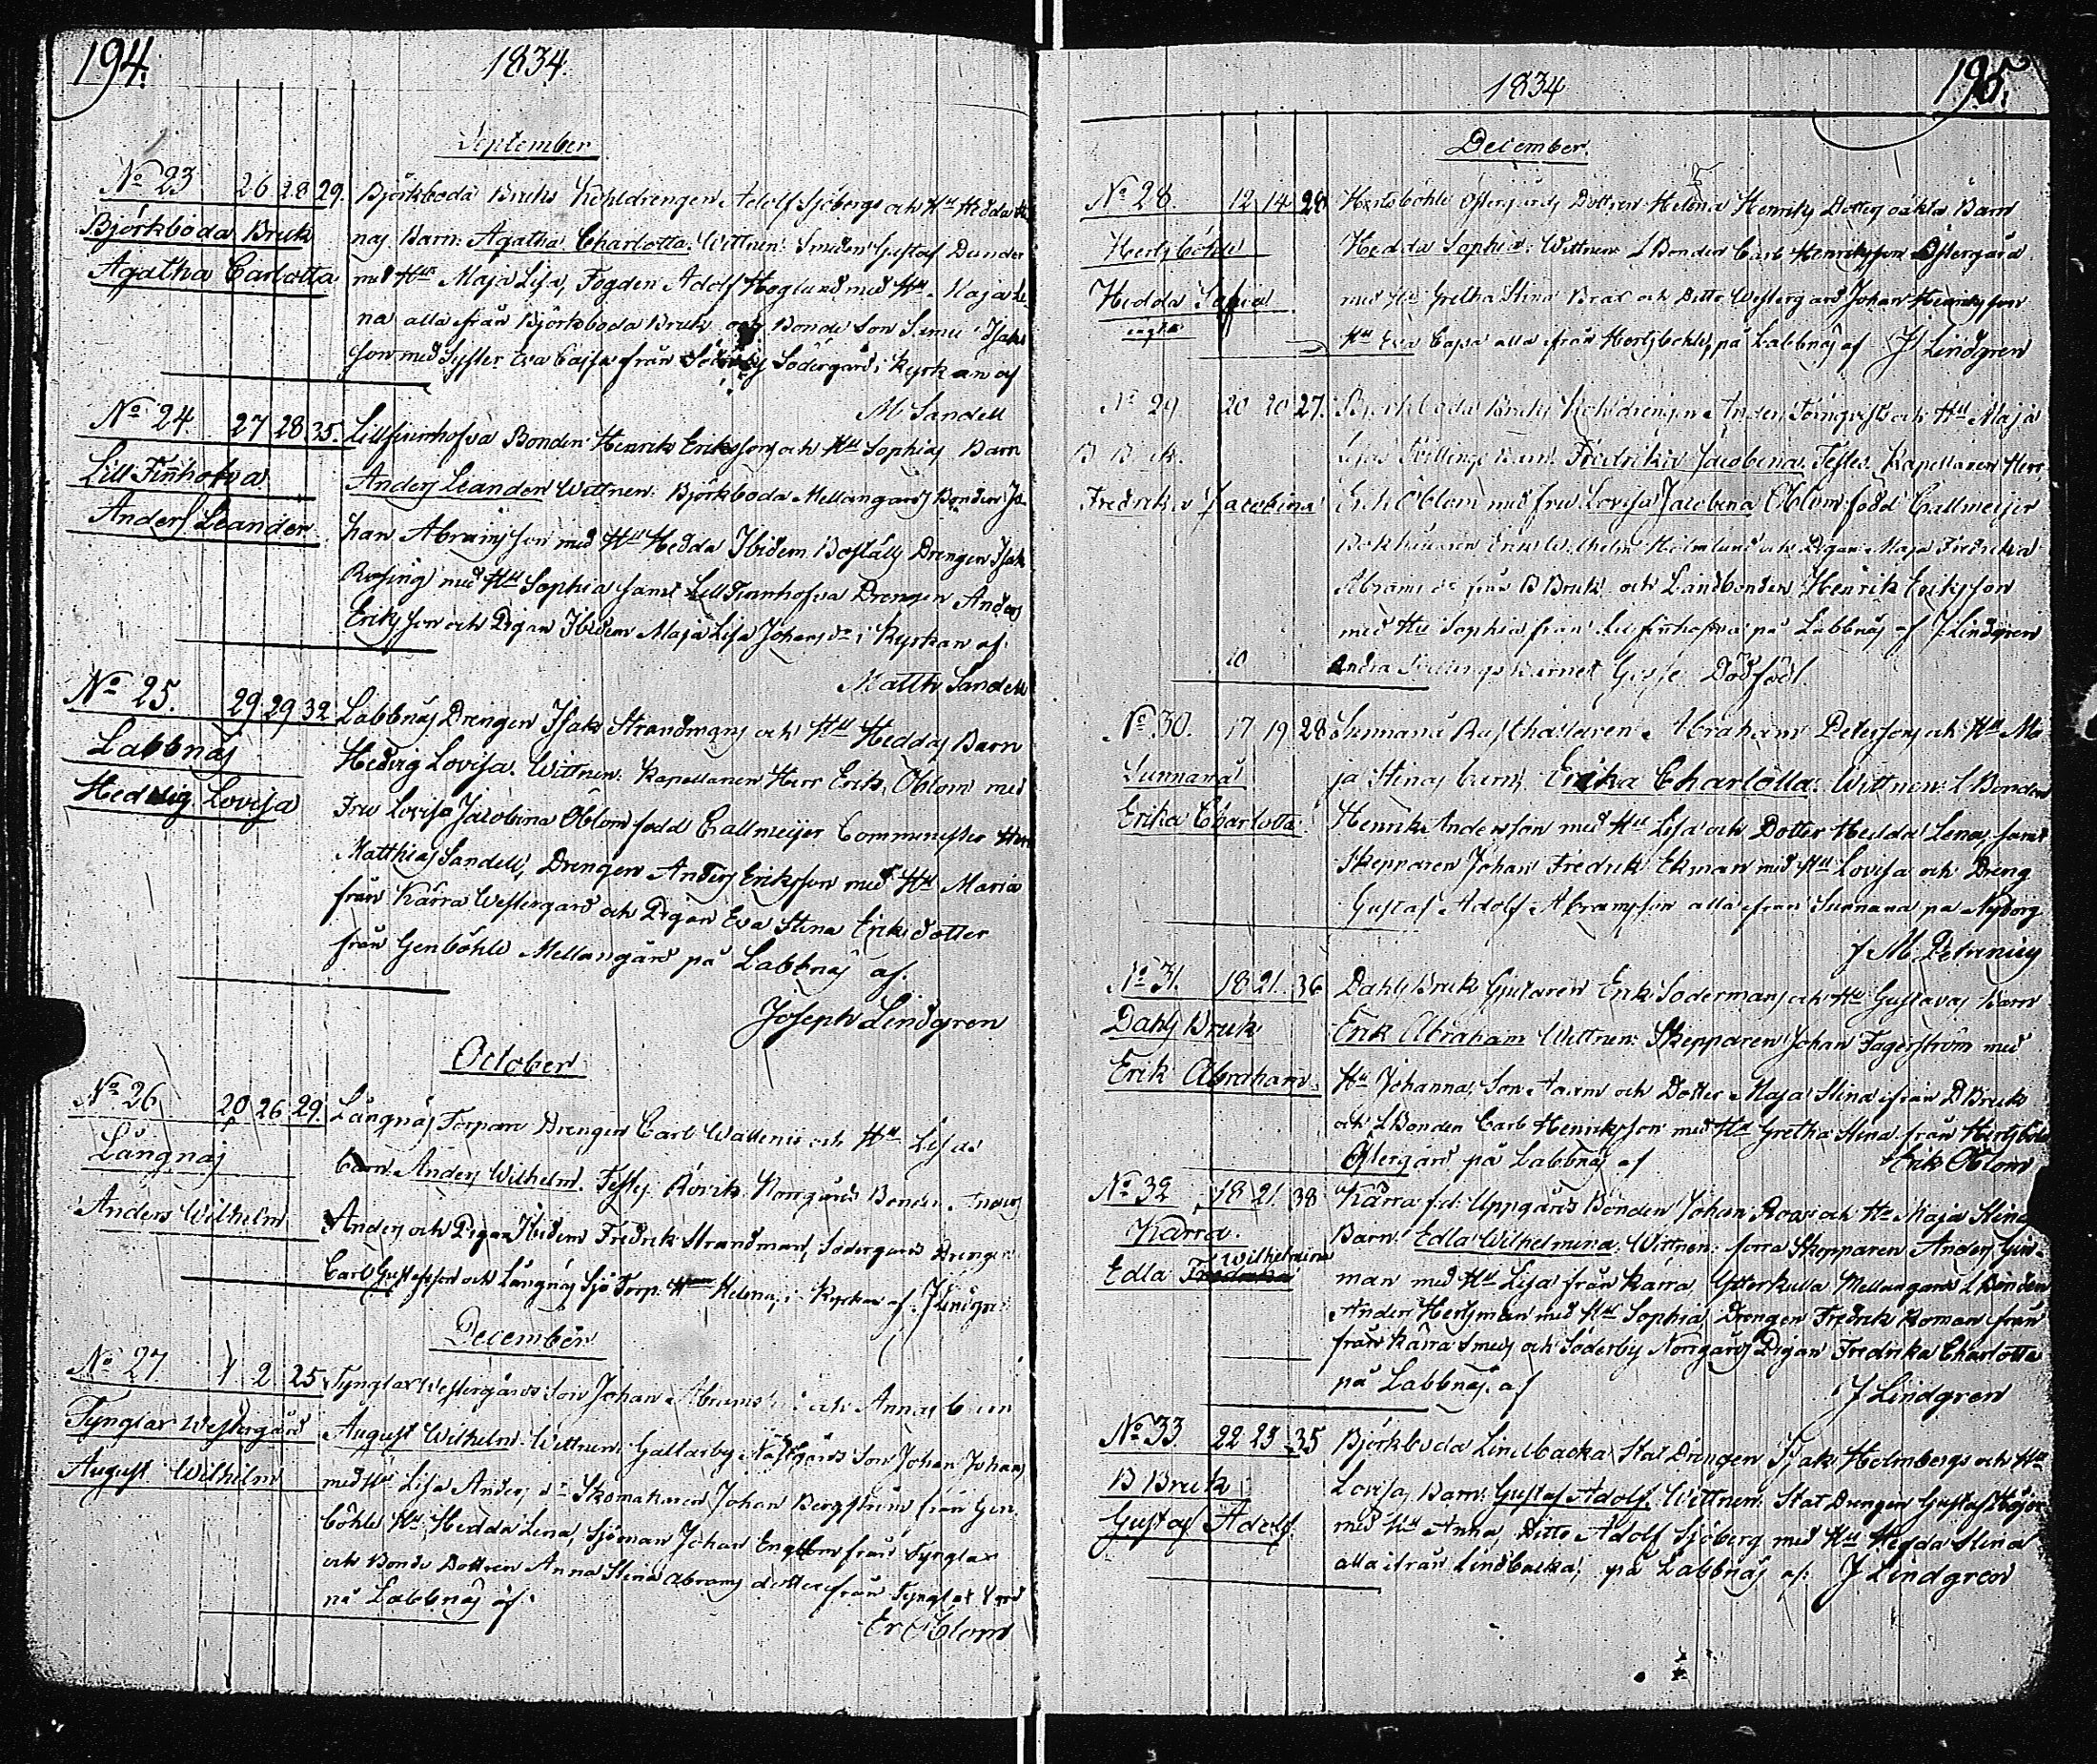 194.
1834.
September
No 23 26 28 29. Björkboda Bruks Kohldrengen Adolf Sjöbergs och Hu Hedda
Björkboda Bruk
Agatha Carlotta
nas Barn: Agatha Charlotta. Wittnen: Smeden Gustaf Dunder
med Hus Maja Lisa, Fogden Adolf Höglund med Hu Maja Le-
na alla från Björkboda Bruk och Bonde Son Simu Isaks
son med Syster Eva Cajsa från Söderby Södergård i Kyrkan af
M. Sandell
No 24. 27 28 35. Lillfinnhofva Bonden Henrik Erikssons och Hu Sophias Barn
Lill Finhofva
Anders Leander
Anders Leander Wittnen: Björkboda Mellangårds Bonden Jo-
han Abramsson med Hu Hedda Ibidem Boställs Drengen Isak
Rosing med Hu Sophia samt Lill Finnhofva Drengen Anders
Eriksson och Pigan Ibidem Maja Lisa Johans dr i Kyrkan af.
Matth Sandell
No 25. 29 29 32 Labbnäs Drengen Isaks Strandmans och Hu Heddas Barn
Labbnäs
Hedvig Lovisa
Hedvig Lovisa. Wittnen: Kapellanen Herr Erik Öblom med
Fru Lovisa Jacobina Öblom född Callmeijer Comminister Herr
Matthias Sandell, Drengen Anders Eriksson med Hu Maria
från Kärra Westergård och Pigan Eva Stina Eriksdotter
från Genböhle Mellangård på Labbnäs af.
Joseph Lindgren
October
No 26 20 26 29. Långnäs Torpare Drengen Carl Wallenii och Hu Lisas
Långnäs
Anders Wilhelm
barn Anders Wilhelm. Testes: Rövik Norrgårds Bonden
Anders och Pigan Ibidem Fredrik Strandman, Södergårds Drengen
Carl Gustafsson och Långnäs Sjö Torp. Helena, i Kyrkan af J Lindgre
December
No 27. 1 2 25 Tynglax Westergårds Son Johan Abrams och Annas barn
Tynglax Westergård
August Wilhelm
August Wilhelm. Wittnen: Galtarby Nästgårds Son Johan Johans
med Hu Lisa Anders dr Skomakaren Johan Bergström från Gen-
böhle Hu Hedda Lena, Sjöman Johan Engblom från Tynglax
och Bonde Dottren Anna Stina Abrams dotter från Tynglax
på Labbnäs af.
Er Öblom
195.
1834
December.
No 28. 12 14 28 Hertsböhle Östergårds Dottren Helena Henriks Dotters oäkta Barn
Hertsböhle
Hedda Sofia
oägta
Hedda Sophia. Wittnen LBonden Carl Henriksson Östergård
med Hu Gretha Stina och Ditto Westergård Johan Henriksson
Hu Eva Cajsa alla från Hertsböhle, på Labbnäs af J Lindgren
No 29 20 20 27. Björkboda Bruks Kohldrengen Anders Törnqvists och Hu Maja
B Bruk.
Fredrika Jacobina
Lisas Tvillings barn: Fredrika Jacobina. Testes: Kapellanen Herr
Erik Öblom med fru Lovisa Jacobina Öblom född Callmeijer
Bokhållaren Erik Wilhelm Holmlund och Pigan Maja Fredrika
Abrams dr från B Bruk och Landbonden Henrik Eriksson
med Hu Sophia från Lillfinhofva på Labbnäs af J. Lindgren
20 Andra Tvillings barnet Gosse Dödfödt
No 30. 17 19 28 Sunnanå Rusthållaren Abraham Peterssons och Hu Ma-
Sunnanå
Erika Charlotta
ja Stinas barn. Erika Charlotta. Wittnen: LBonden
Henrik Andersson med Hu Lisa och Dotter Hedda Lena, samt
Skepparen Johan Fredrik Ekman med Hu Lovisa och Dreng
Gustaf Adolf Abramsson alla från Sunnanå på Nyborg
f M. Petrenius
No 31. 18 21. 36 Dahls Bruk Gjutaren Erik Södermans och Hu Gustavas Barn
Dahls Bruk
Erik Abraham
Erik Abraham Wittnen: Skepparen Johan Fagerström med
Hu Johanna, Son och Dotter Maja Stina ifrån D Bruk
och LBonden Carl Henriksson med Hu Gretha Stina från Hertsböle
Östergård på Labbnäs af Erik Öblom
No 32 18 21 38 Kärra Uppgårds Bonden Johan Roos och Hu Maja Stinas
Kärra.
Edla Fredrika Wilhelmina
Barn: Edla Wilhelmina. Wittnen: förra Skepparen Anders Gin-
man med Hu Lisa från Kärra, Ytterkulla Mellangård LBonden
Anders Hertsman med Hu Sophia Drengen Fredrik Roman från
från Kärra Smeds och Söderby Norrgårds Pigan Fredrika Charlotta
på Labbnäs af J Lindgren
No 33 22 23 35 Björkboda Lindbacka Stat Drengen Isak Holmbergs och Hu
B Bruk
Gustaf Adolf
Lovisas Barn: Gustaf Adolf. Wittnen: Stat Drengen Gustaf
med Hu Anna, Ditto Adolf Sjöberg med Hu Hedda Stina
alla ifrån Lindbacka, på Labbnäs af. J Lindgren